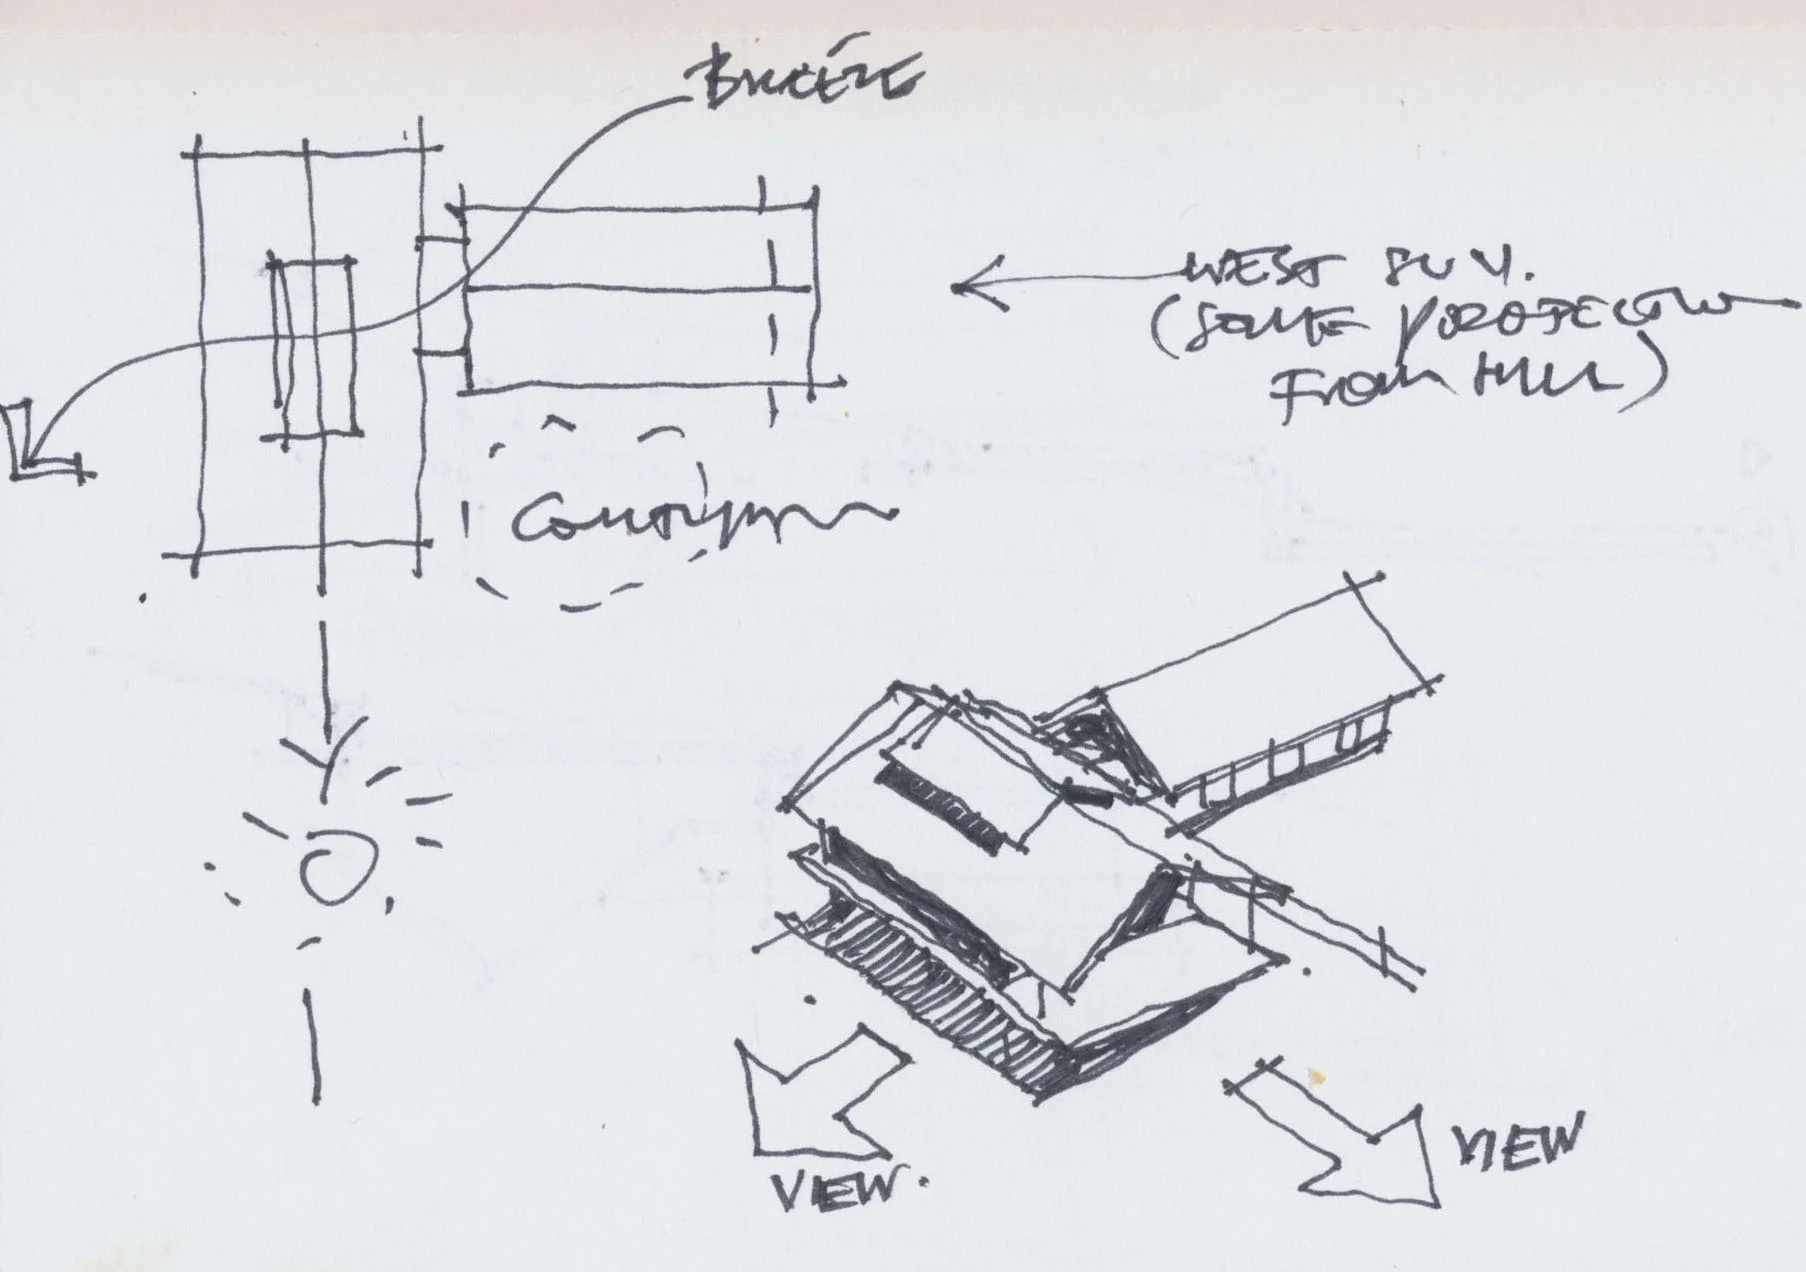 BREEZE
WEST SUN.
(SOME PROTECTION
FROM HILL)
COURTYARD
VIEW.
VIEW